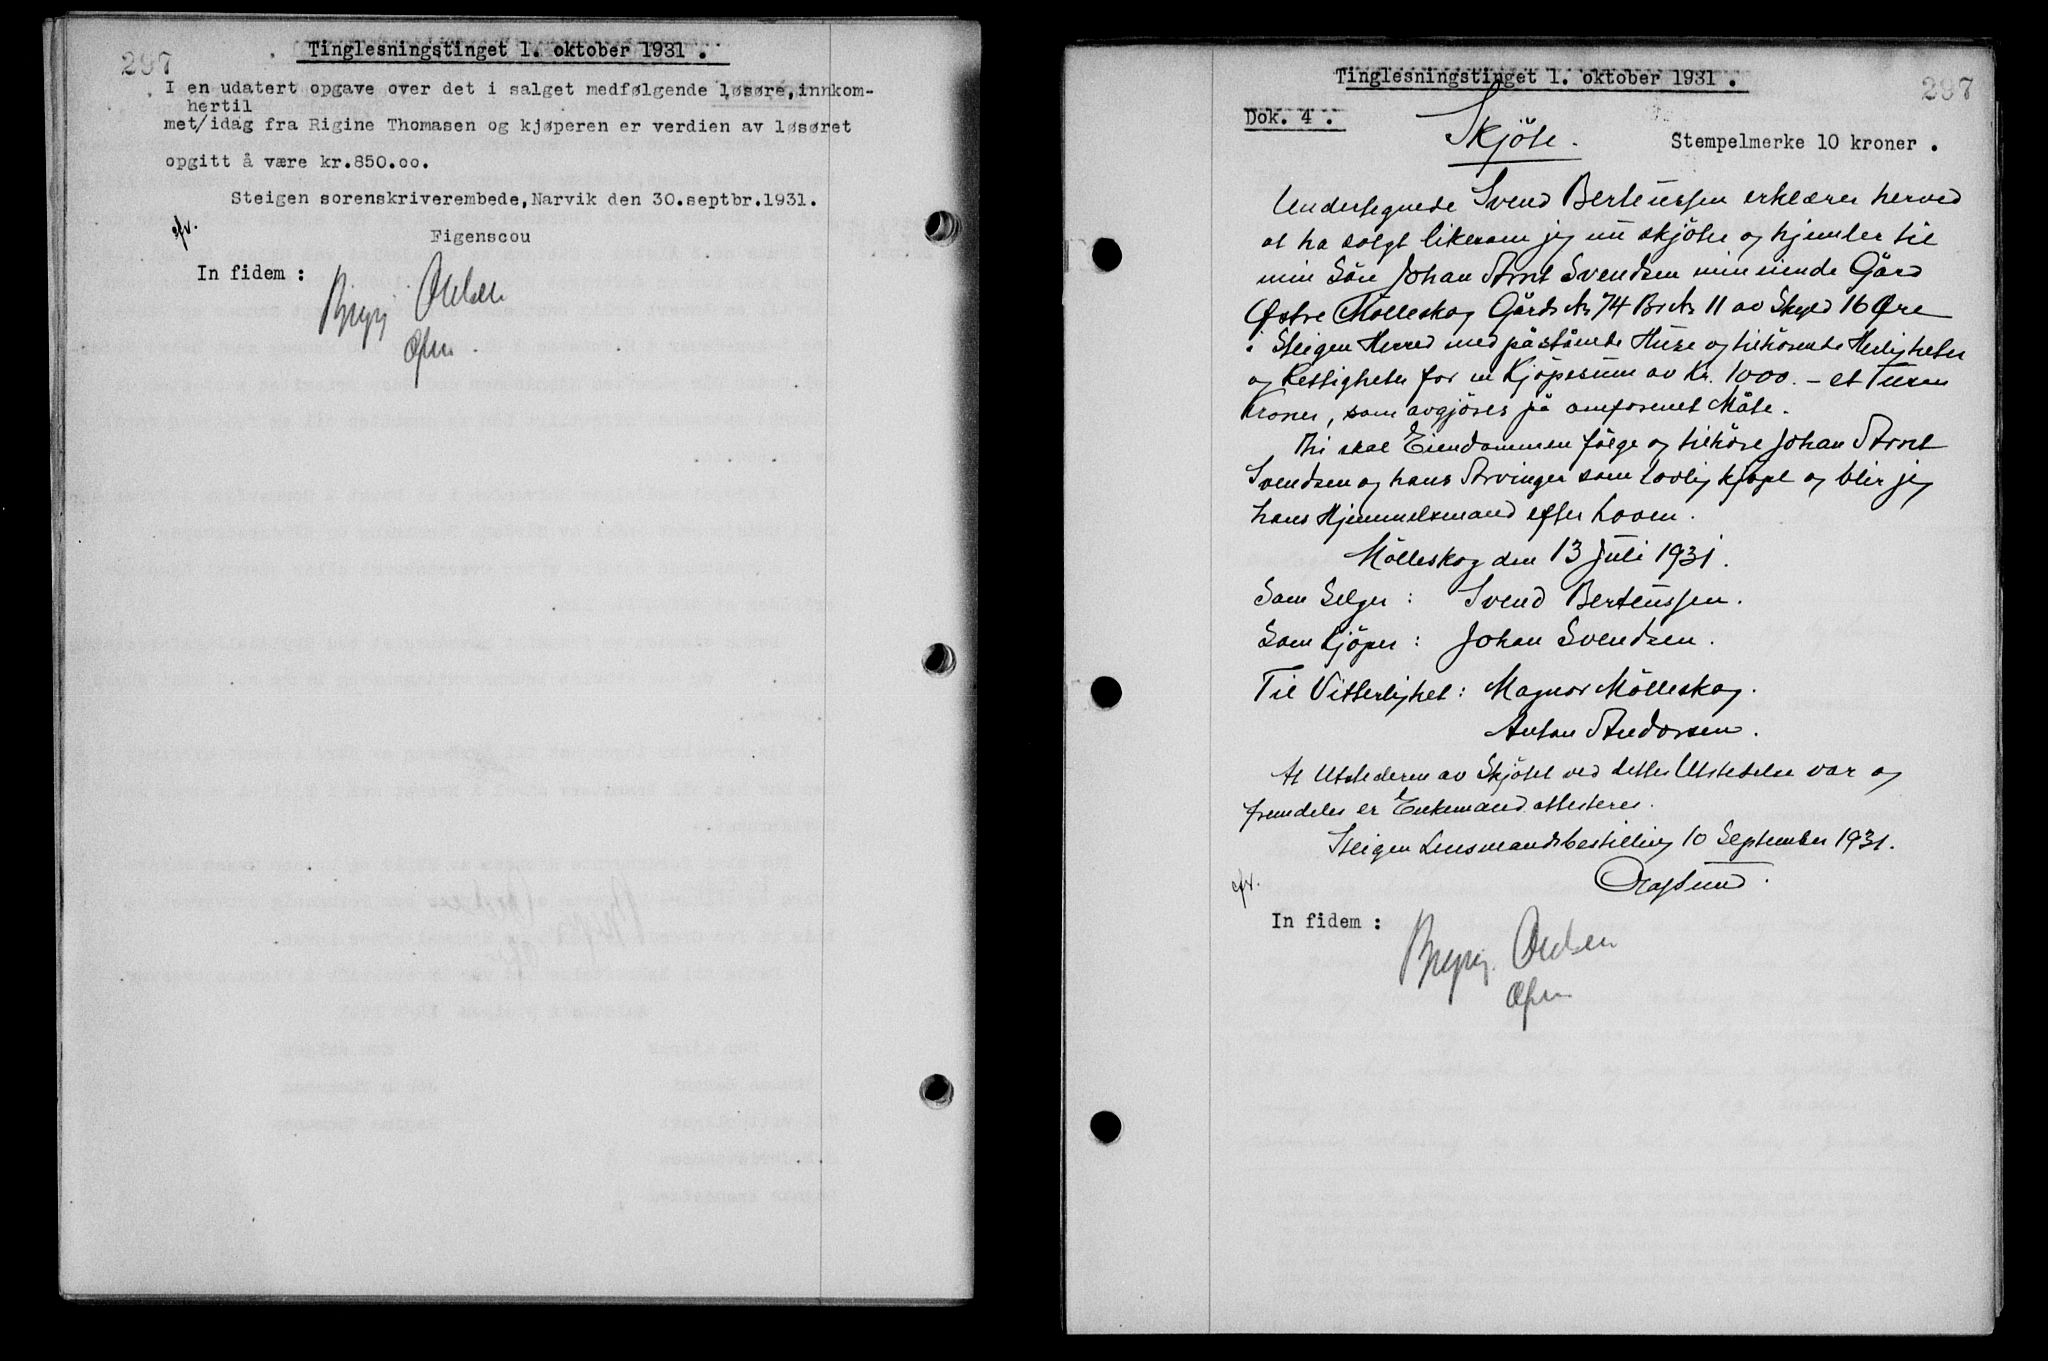 297
Tinglesningstinget 1. oktober 1931.
I en udatert opgave over det i salget medfølgende løsøre, innkom-
hertil
met/idag fra Rigine Thomasen og kjøperen er verdien av løsøret
opgitt å være kr.850.oo.
Steigen sorenskriverembede, Narvik den 30.septbr.1931.
Figenscou
In fidem :
297
Tinglesningstinget 1. oktober 1931.
Dok. 4.
Skjöte.
Stempelmerke 10 kroner.
Undertegnede Svend Berteussen erklærer herved
at ha solgt likesom jeg nu skjöter og hjemler til
min Sön Johan Arnt Svendsen min eiende Gård
Østre Mölleskog Gårds No 74 Br No 11 av Skyld 16 Øre
i Steigen Herred med påstående Huse og tilhörende Herligheter
og Rettigheter for en Kjöpesum av Kr. 1000.- et Tusen
Kroner, som avgjöres på omforenet Måte.
Thi skal Eiendommen fölge og tilhöre Johan Arnt
Svendsen og hans Arvinger som lovlig kjöpt og blir jeg
hans Hjemmelsmand efter Loven.
Mölleskog den 13 Juli 1931.
Som Selger : Svend Berteussen.
Som Kjöper : Johan Svendsen.
Til Vitterlighet : Magnor Mölleskog.
Anton Andorsen.
At Utstederen av Skjötet ved dettes Utstedelse var og
fremdeles er Enkemand attesteres.
Steigen Lensmandsbestilling 10 September 1931.
In fidem :